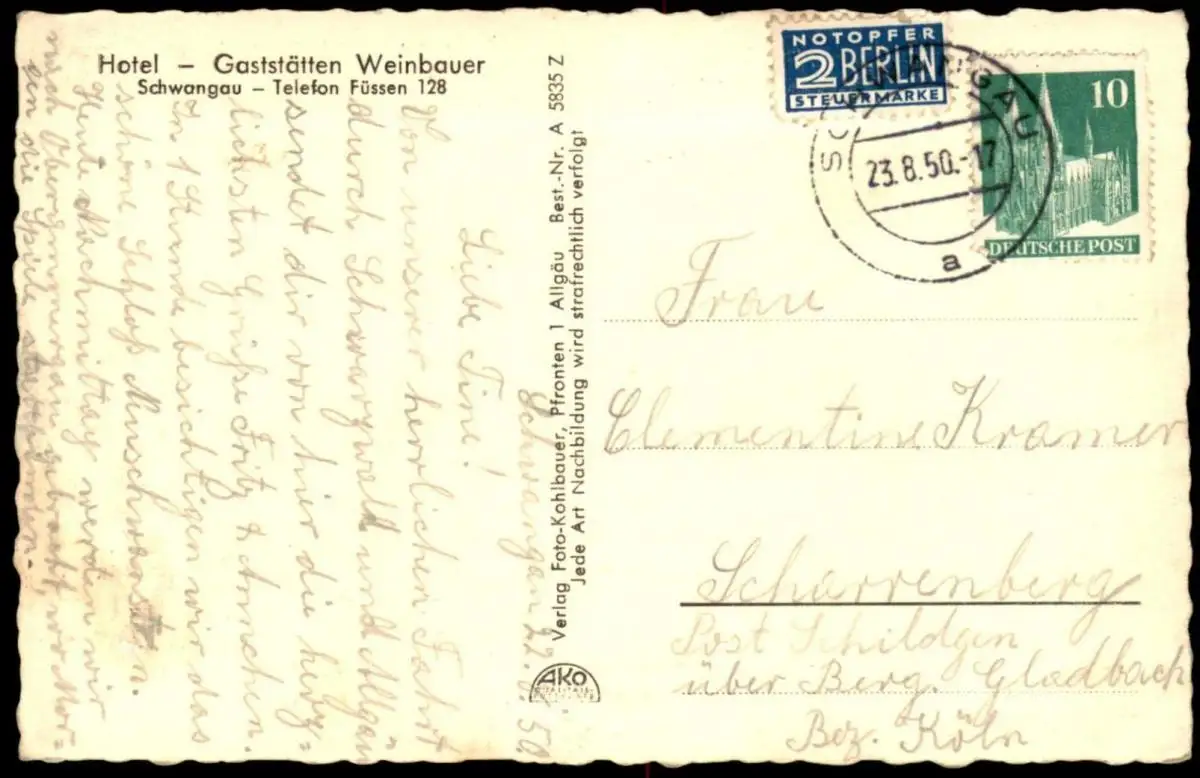 Hotel – Gaststätten Weinbauer
Schwangau – Telefon Füssen 128
Schwangau 22.8.50.
Liebe Tine!
Von unserer herrlichen Fahrt
durch Schwarzwald und Allgäu
sendet dir von hier die herz=
lichsten Grüße Fritz & Annchen.
In 1 Stunde besichtigen wir das
schöne Schloß Neuschwanstein.
Heute Nachmittag werden wir
nach Oberammergau gebracht, wo Mor=
gen die Spiele stattfinden.
Verlag Foto-Kohlbauer, Pfronten 1 Allgäu Best.-Nr. A 5835 Z
Jede Art Nachbildung wird strafrechtlich verfolgt
AKO
NOTOPFER
2 BERLIN
STEUERMARKE
SCHWANGAU
23.8.50.-17
a
10
DEUTSCHE POST
Frau
Clementine Kramer
Scharrenberg
Post Schildgen
über Berg. Gladbach
Bez. Köln